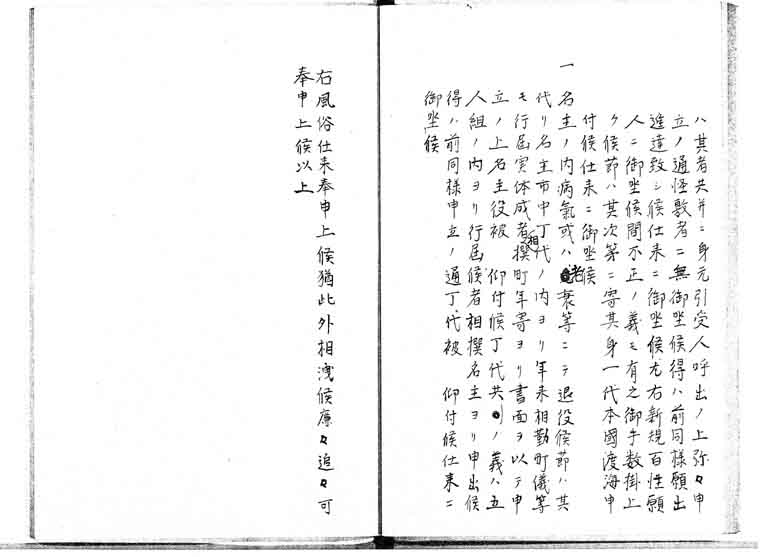 ハ其者共并ニ身元引受人呼出ノ上弥々申
立ノ通怪敷者ニ無御坐候得ハ前同様願出
進達致シ候仕来ニ御坐候尤右新規百性願
人ニ御坐候間不正ノ義モ有之御手数掛上
ケ候節ハ其次第ニ寄其身一代本國渡海申
付候仕来ニ御坐候
一 名主ノ内病氣或ハ老衰等ニテ退役候節ハ其
代リ名主市中丁代ノ内ヨリ年来相勤町儀等
モ行届実体成者相撰町年寄ヨリ書面ヲ以テ申
立ノ上名主役被 仰付候丁代共ノ義ハ五
人組ノ内ヨリ行届候者相撰名主ヨリ申出候
得ハ前同様申立ノ通丁代被 仰付候仕来ニ
御坐候
右風俗仕来奉申上候猶此外相洩候廉々追々可
奉申上候以上